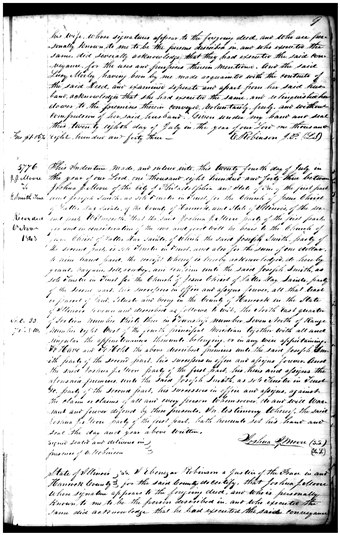 his wife, whose signatures appear to the foregoing deed, and who are per-
sonally known to me to be the persons described in, and who executed the
same, did severally acknowledge that they had executed the said con-
veyance, for the uses and purposes therein mentioned. And the said
Lucy having been by me made acquainted with the contents of
the said deed, and examined separate and apart from her said hus-
band, acknowledged that she had executed the same, and relinquished her
dower to the premises therein conveyed, voluntarily, freely, and without
compulsion of her said husband. Given under my hand and seal
this twenty eighth day of July in the year of our Lord one thousand
eight hundred and forty three E Robinson J.P.
5776
This Indenture, made and entered into this twenty fourth day of July in
the year of our Lord one thousand eight hundred and forty three between
Joshua of the city of Philadelphia and State of the first part
and Joseph Smith as sole Trustee in Trust for the Church of Jesus Christ
of Latter Day Saints of the County of Hancock and State of Illinois of the sec-
ond part Witnesseth, that the said Joshua party of the first part
for and in consideration of the
Christ of Latter Day Saints, of which the said Joseph Smith, party of
the second part, is sole Trustee in Trust, and also for the sum of one dollar
to him in hand paid, the receipt whereof is hereby acknowledged, do hereby
grant, bargain, sell, convey, and confirm unto the said Joseph Smith, as
sole Trustee in Trust for the Church of Jesus Christ of Latter Day Saints, party
of the second part, his successors in office and assigns forever, all that tract
or parcel of land, situate and lying in the County of Hancock in the State
of Illinois known and described as follows to wit, the North East quarter
of Section number Thirty three in Township number Seven North of Range
number eight West of the fourth principal Meridian together with all and
singular the appurtenances thereunto belonging, or in any wise appertaining.
To Have and to Hold the above described premises unto the said Joseph Smith
party of the second part, his successors in office and assigns forever. And
the said Joshua party of the first part, his heirs and assigns the
aforesaid premises unto the said Joseph Smith as sole Trustee in Trust
party of the second part, his successors in office and assigns, against
the claim or claims of all and every person whomsoever do and will War-
rant and forever defend by these presents. In testimony whereof the said
Joshua party of the first part, hath hereunto set his hand and
seal the day and year above written.
Signed Sealed and delivered in
presence of E Robinson
Joshua
State of Illinois
Hancock County
I Ebenezer Robinson a Justice of the Peace in and
for the said County do certify, that Joshua
whose signature appears to the foregoing deed, and who is personally
known to me to be the person described in, and who executed the
same did acknowledge that he had executed the said conveyance